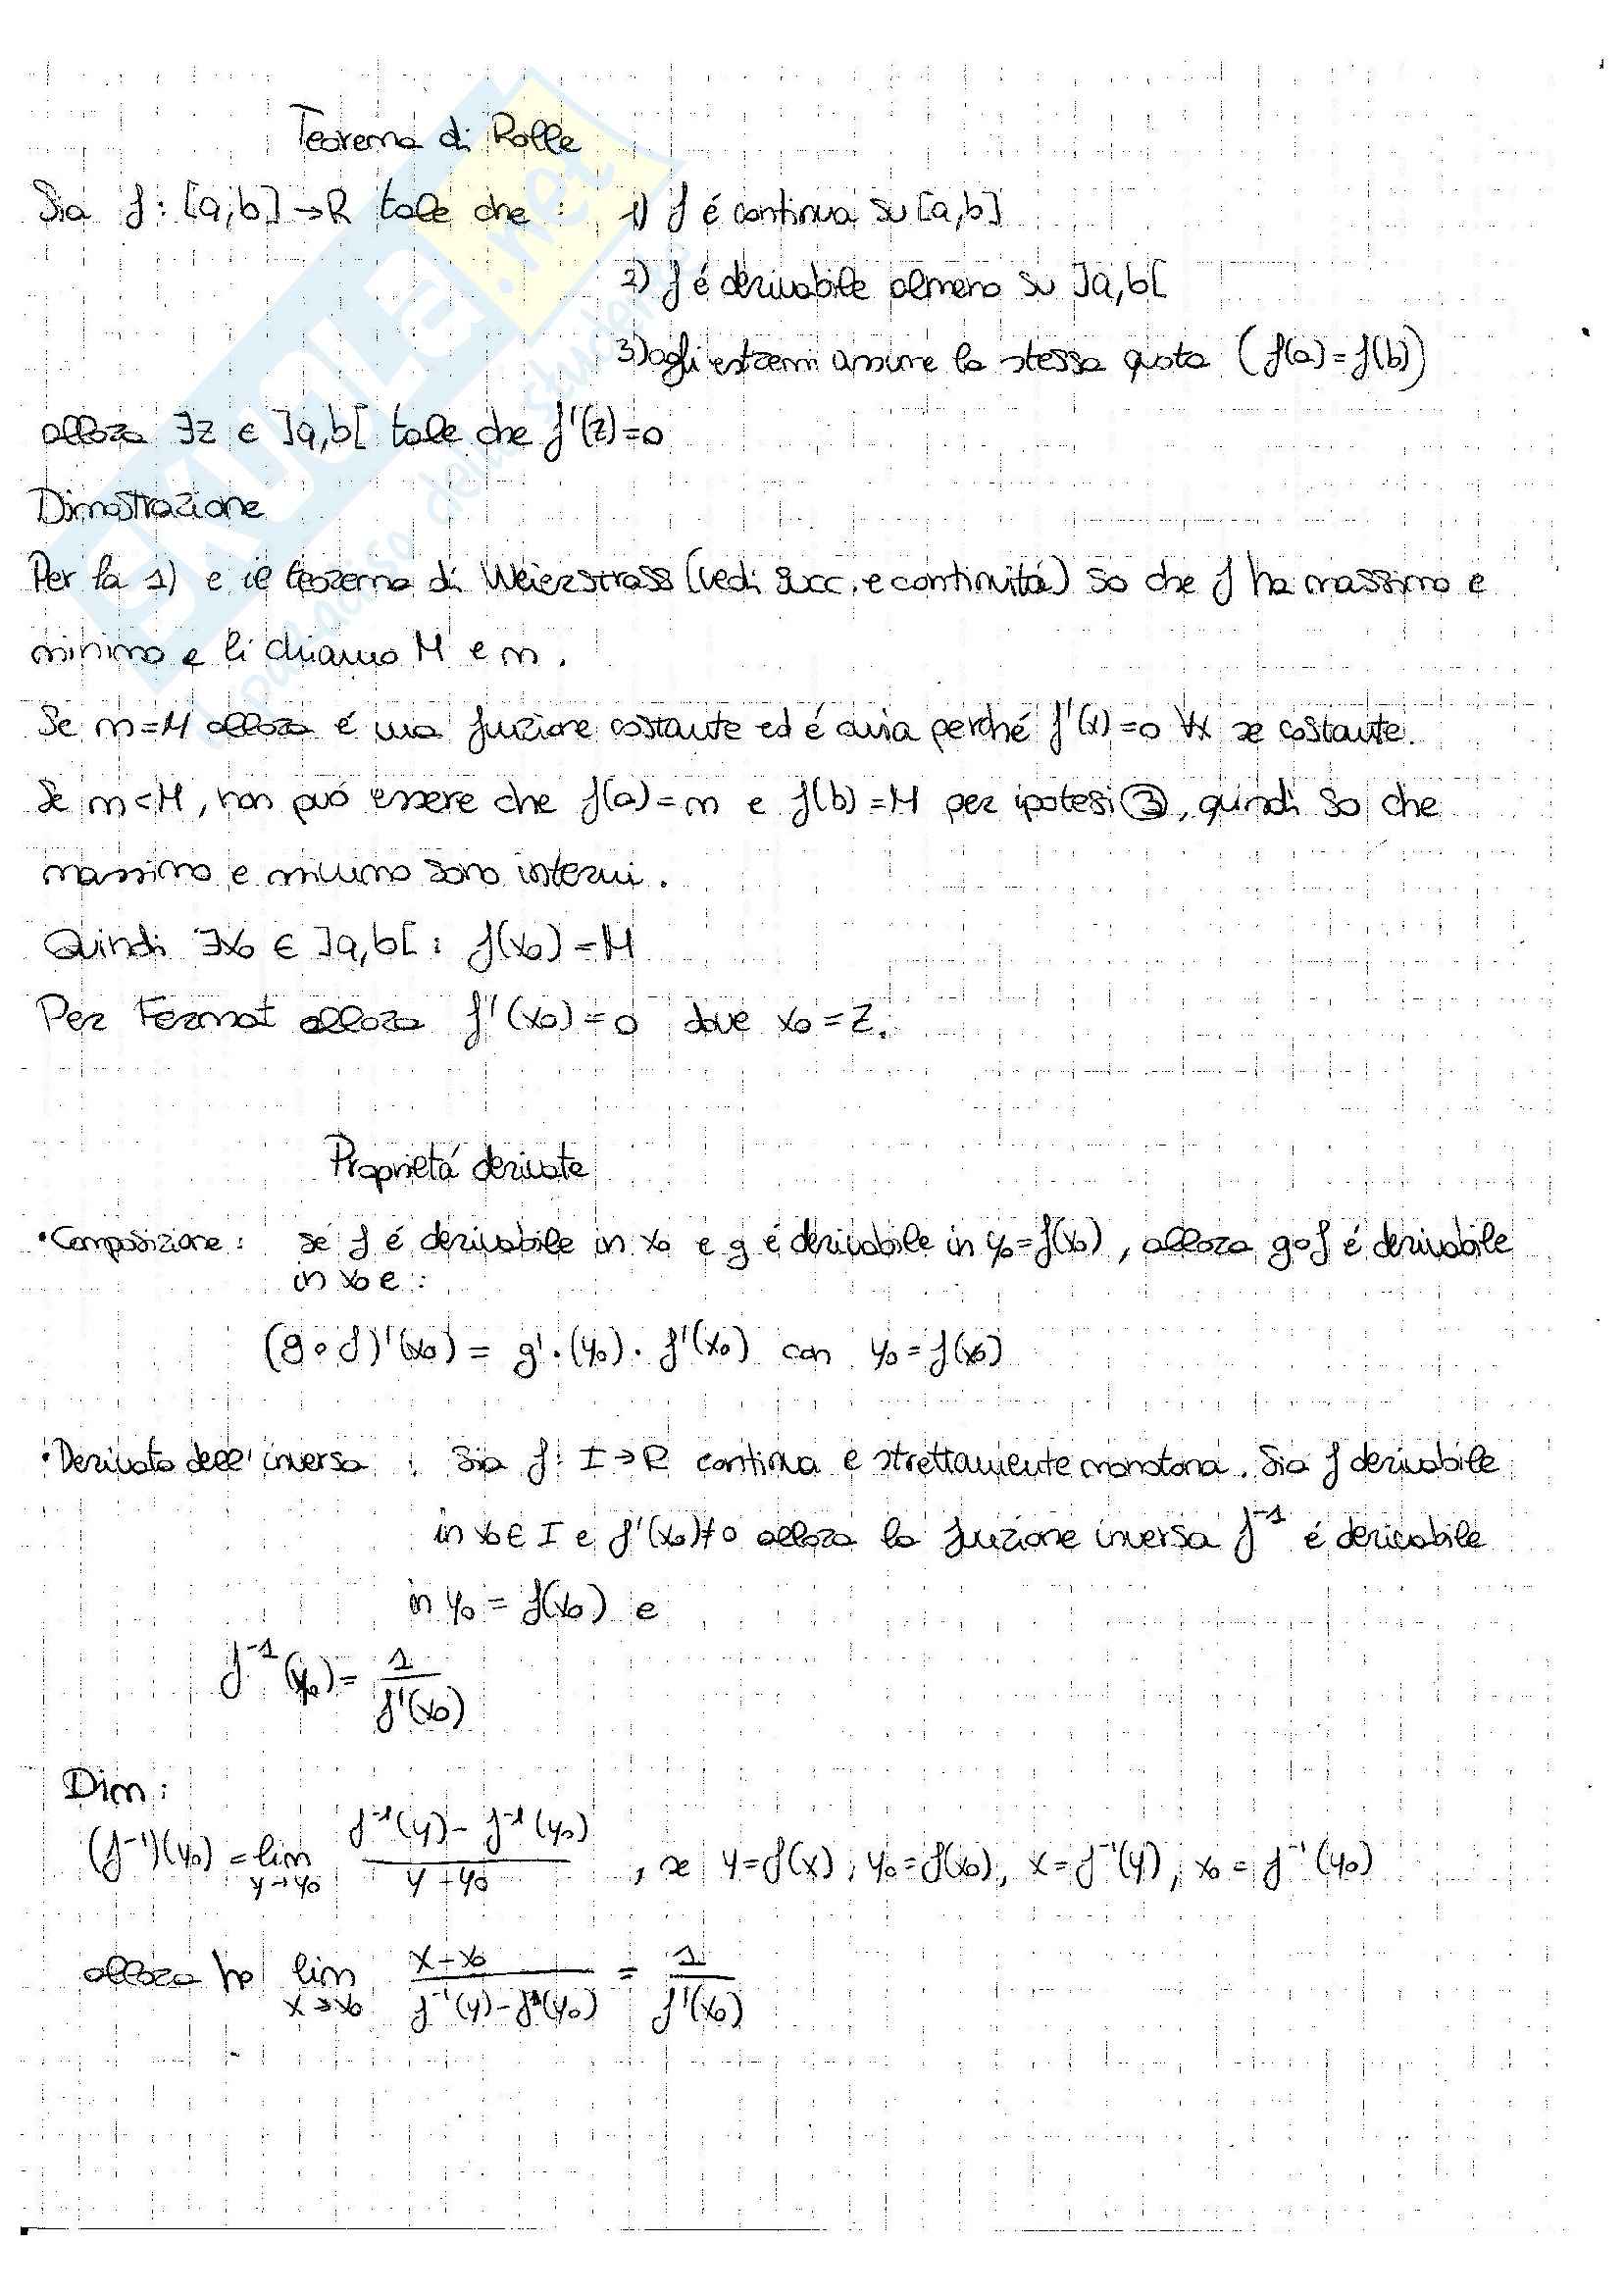 Teorema di Rolle
Sia f: [a,b] → R tale che : 1) f é continua su [a,b]
2) f é derivabile almeno su ]a,b[
3) agli estremi assume la stessa quota (f(a) = f(b))
allora ∃z ∈ ]a,b[ tale che f'(z)=0
Dimostrazione
Per la 1) e il teorema di Weierstrass (vedi succ. e continuitá) so che f ha massimo e
minimo e li chiamo M e m.
Se m=M allora é una funzione costante ed é ovvia perché f'(x)=0 ∀x se costante.
Se m<M, non puó essere che f(a)=m e f(b)=M per ipotesi ③, quindi so che
massimo e minimo sono interni.
Quindi ∃x₀ ∈ ]a,b[ : f(x₀) = M
Per Fermat allora f'(x₀) = 0 dove x₀ = z.
Proprietá derivate
• Composizione : se f é derivabile in x₀ e g é derivabile in y₀=f(x₀), allora g∘f é derivabile
in x₀ e :
(g∘f)'(x₀) = g'·(y₀)· f'(x₀) con y₀ = f(x₀)
• Derivata dell'inversa : Sia f: I → R continua e strettamente monotona. Sia f derivabile
in x₀ ∈ I e f'(x₀)≠0 allora la funzione inversa f⁻¹ é derivabile
in y₀ = f(x₀) e
f⁻¹(y₀) = 1/f'(x₀)
Dim :
(f⁻¹)(y₀) = lim y→y₀ (f⁻¹(y) - f⁻¹(y₀))/(y - y₀) , se y=f(x), y₀=f(x₀), x=f⁻¹(y), x₀ = f⁻¹(y₀)
allora ho lim x→x₀ (x - x₀)/(f⁻¹(y) - f⁻¹(y₀)) = 1/f'(x₀)